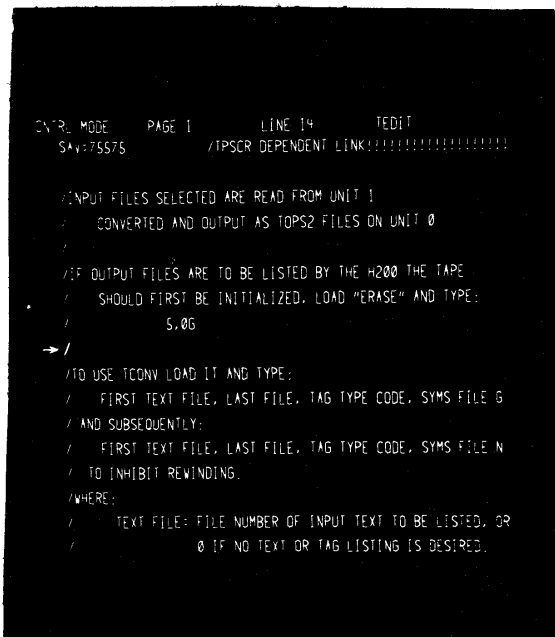 CNTRL MODE PAGE 1 LINE 14 TEDIT
SAV=75575 /TPSCR DEPENDENT LINK!!!!!!!!!!!!!!!!!!!
/INPUT FILES SELECTED ARE READ FROM UNIT 1
/ CONVERTED AND OUTPUT AS TOPS2 FILES ON UNIT 0
/
/IF OUTPUT FILES ARE TO BE LISTED BY THE H200 THE TAPE
/ SHOULD FIRST BE INITIALIZED, LOAD "ERASE" AND TYPE:
/ 5,0G
→ /
/TO USE TCONV LOAD IT AND TYPE:
/ FIRST TEXT FILE, LAST FILE, TAG TYPE CODE, SYMS FILE G
/ AND SUBSEQUENTLY:
/ FIRST TEXT FILE, LAST FILE, TAG TYPE CODE, SYMS FILE N
/ TO INHIBIT REWINDING.
/WHERE:
/ TEXT FILE= FILE NUMBER OF INPUT TEXT TO BE LISTED, OR
/ 0 IF NO TEXT OR TAG LISTING IS DESIRED.